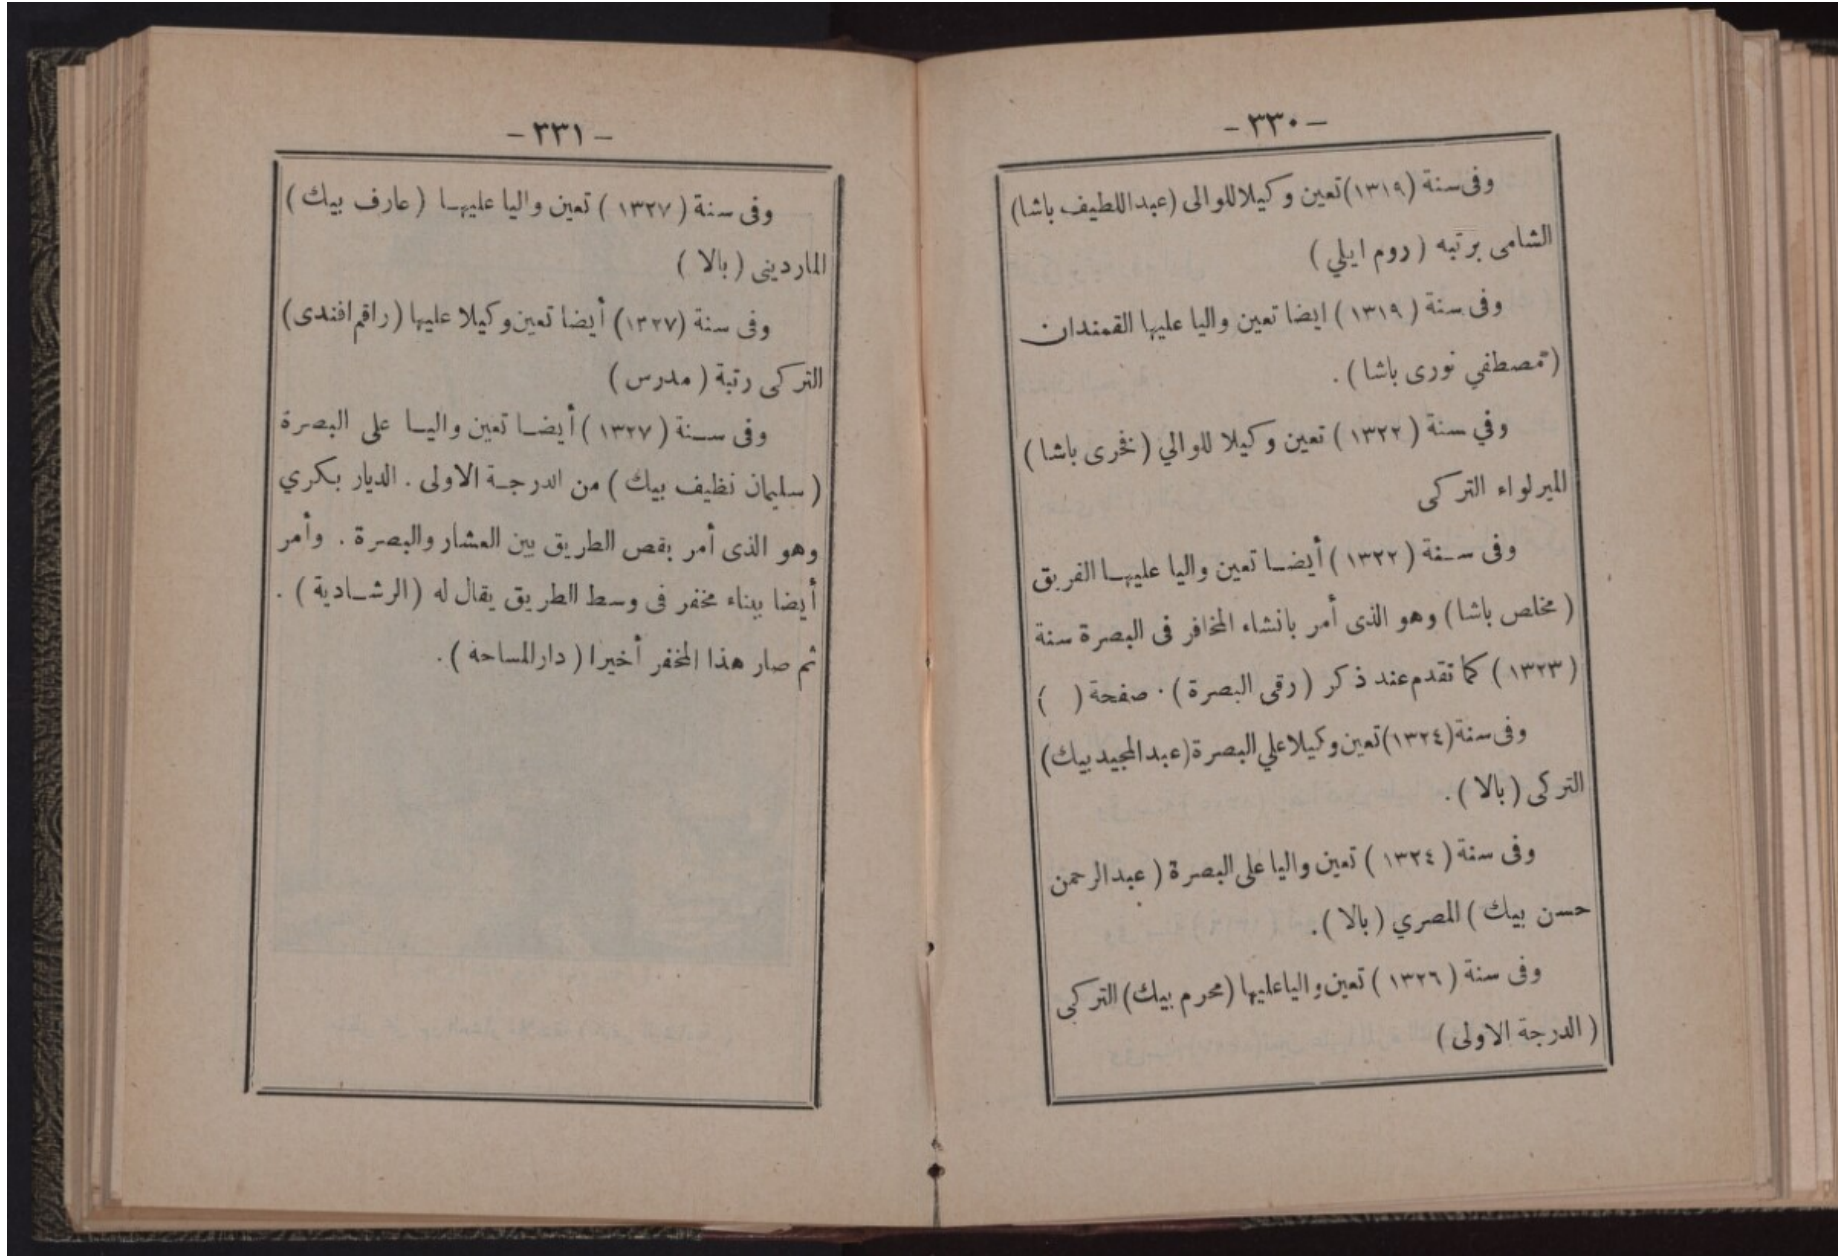 - ٣٣٠ -
وفى سنة (١٣١٩) تعين وكيلا للوالى (عبداللطيف باشا)
الشامى برتبه (روم ايلي)
وفى سنة (١٣١٩) ايضا تعين واليا عليها القمندان
(مصطفي نورى باشا).
وفي سنة (١٣٢٢) تعين وكيلا للوالي (فخرى باشا)
الميرلواء التركى
وفى سنة (١٣٢٢) أيضا تعين واليا عليها الفريق
(مخلص باشا) وهو الذى أمر بانشاء المخافر فى البصرة سنة
(١٣٢٣) كما تقدم عند ذكر (رقى البصرة). صفحة ( )
وفى سنة (١٣٢٤) تعين وكيلا علي البصرة (عبدالمجيد بيك)
التركى (بالا).
وفى سنة (١٣٢٤) تعين واليا على البصرة (عبدالرحمن
حسن بيك) المصري (بالا).
وفى سنة (١٣٢٦) تعين واليا عليها (محرم بيك) التركى
(الدرجة الاولى)
- ٣٣١ -
وفى سنة (١٣٢٧) تعين واليا عليها (عارف بيك)
الماردينى (بالا)
وفى سنة (١٣٢٧) أيضا تعين وكيلا عليها (راقم افندى)
التركى رتبة (مدرس)
وفى سنة (١٣٢٧) أيضا تعين واليا على البصرة
(سليمان نظيف بيك) من الدرجة الاولى. الديار بكري
وهو الذى أمر بقص الطريق بين العشار والبصرة. وأمر
أيضا ببناء مخفر فى وسط الطريق يقال له (الرشادية).
ثم صار هذا المخفر أخيرا (دار المساحة).